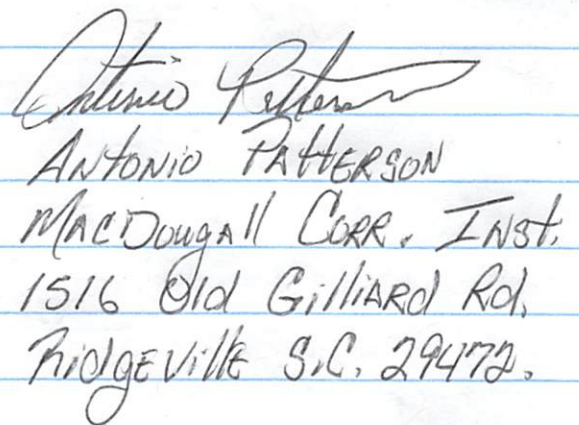 Antonio Patterson
ANTONIO PATTERSON
MACDOUGAll CORR. INSt.
1516 Old GilliARd Rd.
RidgEVillE S.C. 29472.